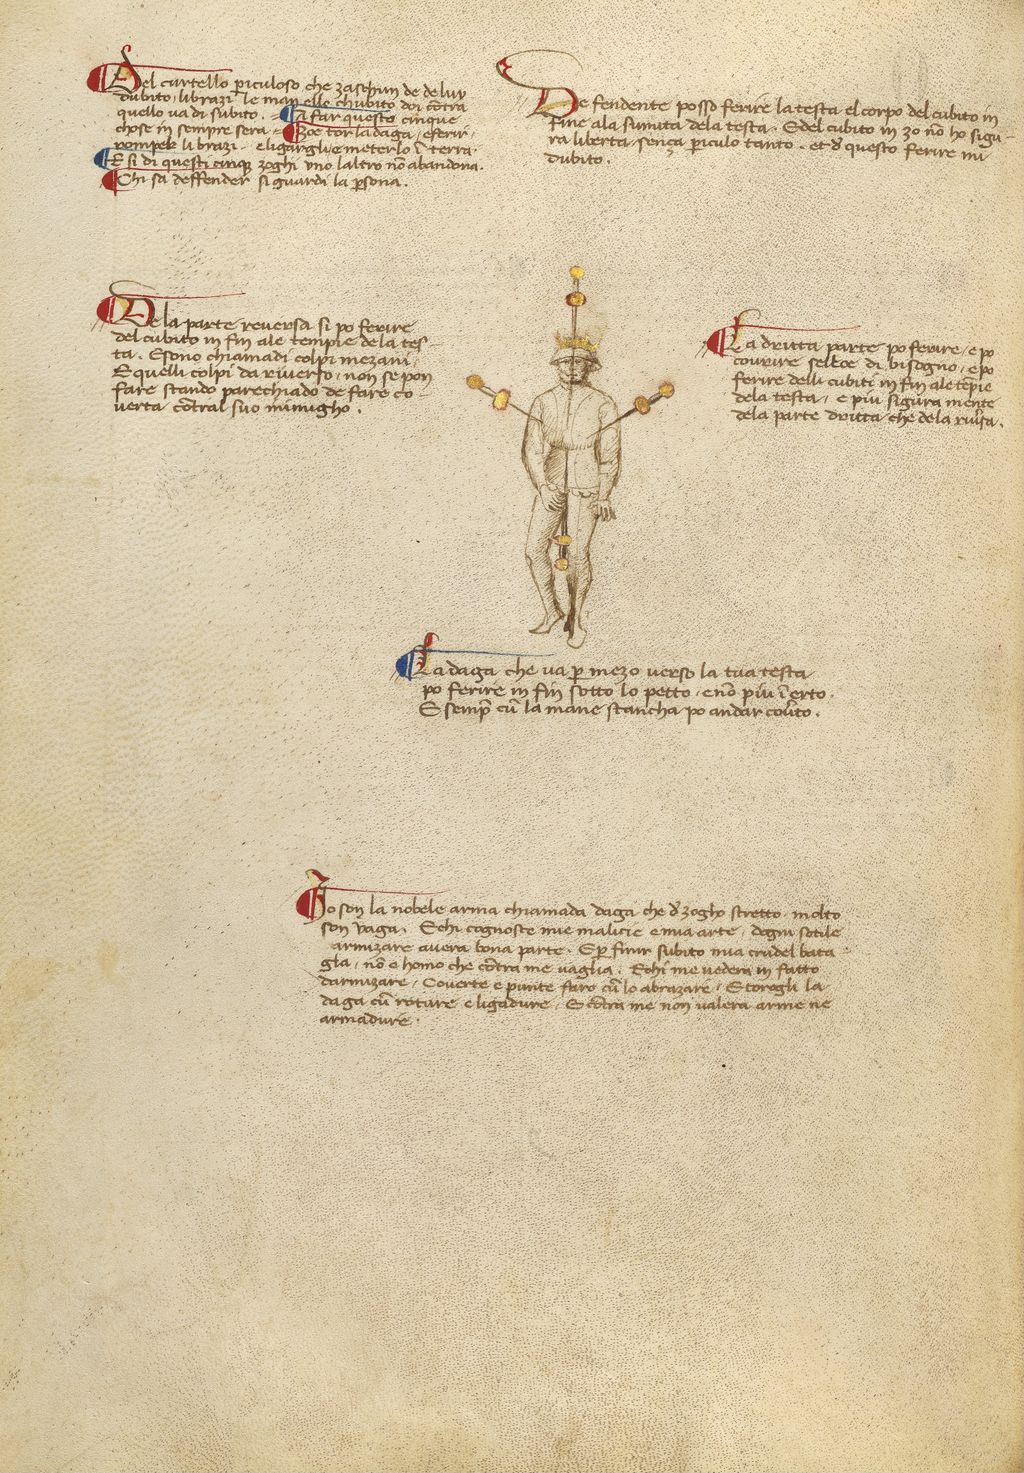 Del curtello piculoso che zaschun de de luy
dubito, li brazi le man elle chubito doi contra
quello va di subito. A far questo cinque
chose in sempre sera. Zoe tor la daga, e ferir,
romper li brazi, e ligargli e meterlo in terra.
E si di questi cinque zoghi uno laltro non abandona.
Chi sa deffender si guardi la psona.
De fendente posso ferire la testa el corpo del cubito in
fine ala sumita dela testa. E del cubito in zo non ho sigu-
ra liberta, senza piculo tanto, et de questo ferire mi
dubito.
De la parte reversa si po ferire
del cubito in fin ale tempie dela tes-
ta. E sono chiamadi colpi mezani.
E quelli colpi da riverso, non se pon
fare stando parechiado de fare co-
verta contral suo inimigho.
La dritta parte po ferire, e po
covrire se elloe di bisogno, e po
ferire delli cubiti in fin ale tempie
dela testa, e piu sigura mente
dela parte dritta che dela riversa.
La daga che va p mezo verso la tua testa
po ferire in fin sotto lo petto, e no piu in erto.
E semp cum la mane stancha po andar covto.
Io son la nobele arma chiamada daga che de zogho stretto, molto
son vaga. E chi cognosce mie malicie e mia arte, dogni sotile
armizare avera bona parte. E p finir subito mia crudel bata-
glia, no e homo che contra me vaglia. E chi me vedera in fatto
darmizare, Coverte e punte faro cum lo abrazare, E torogli la
daga cum roture e ligadure, E contra me non valera arme ne
armadure.